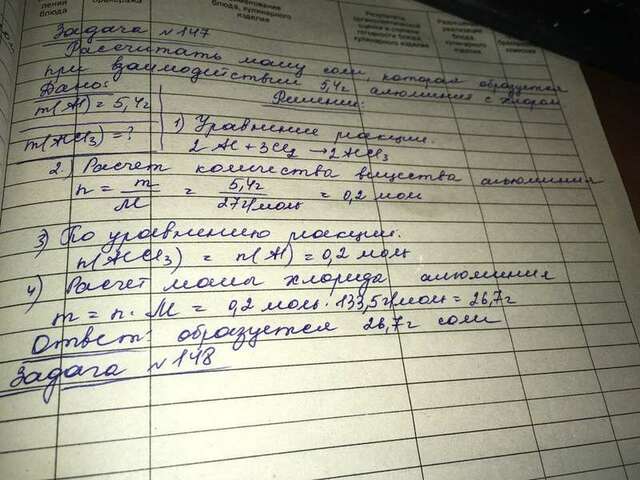 блюда
бракеража
наименование
блюда, кулинарного
изделия
Результаты
органолептической
оценки и степени
готовности блюда
кулинарного изделия
реализации
блюда
кулинарного
изделия
комиссии
Задача №147
Рассчитать массу соли, которая образуется
при взаимодействии 5,4г алюминия с хлором
Дано:
Решение:
m(Al) = 5,4г
1) Уравнение реакции.
m(AlCl3) = ?
2Al + 3Cl2 → 2AlCl3
2.) Расчет количества вещества алюминия
n = m/M = 5,4г/27г/моль = 0,2 моль
3) По уравнению реакции.
n(AlCl3) = n(Al) = 0,2 моль
4) Расчет массы хлорида алюминия
m = n · M = 0,2 моль · 133,5г/моль = 26,7г
Ответ: образуется 26,7г соли
Задача №148